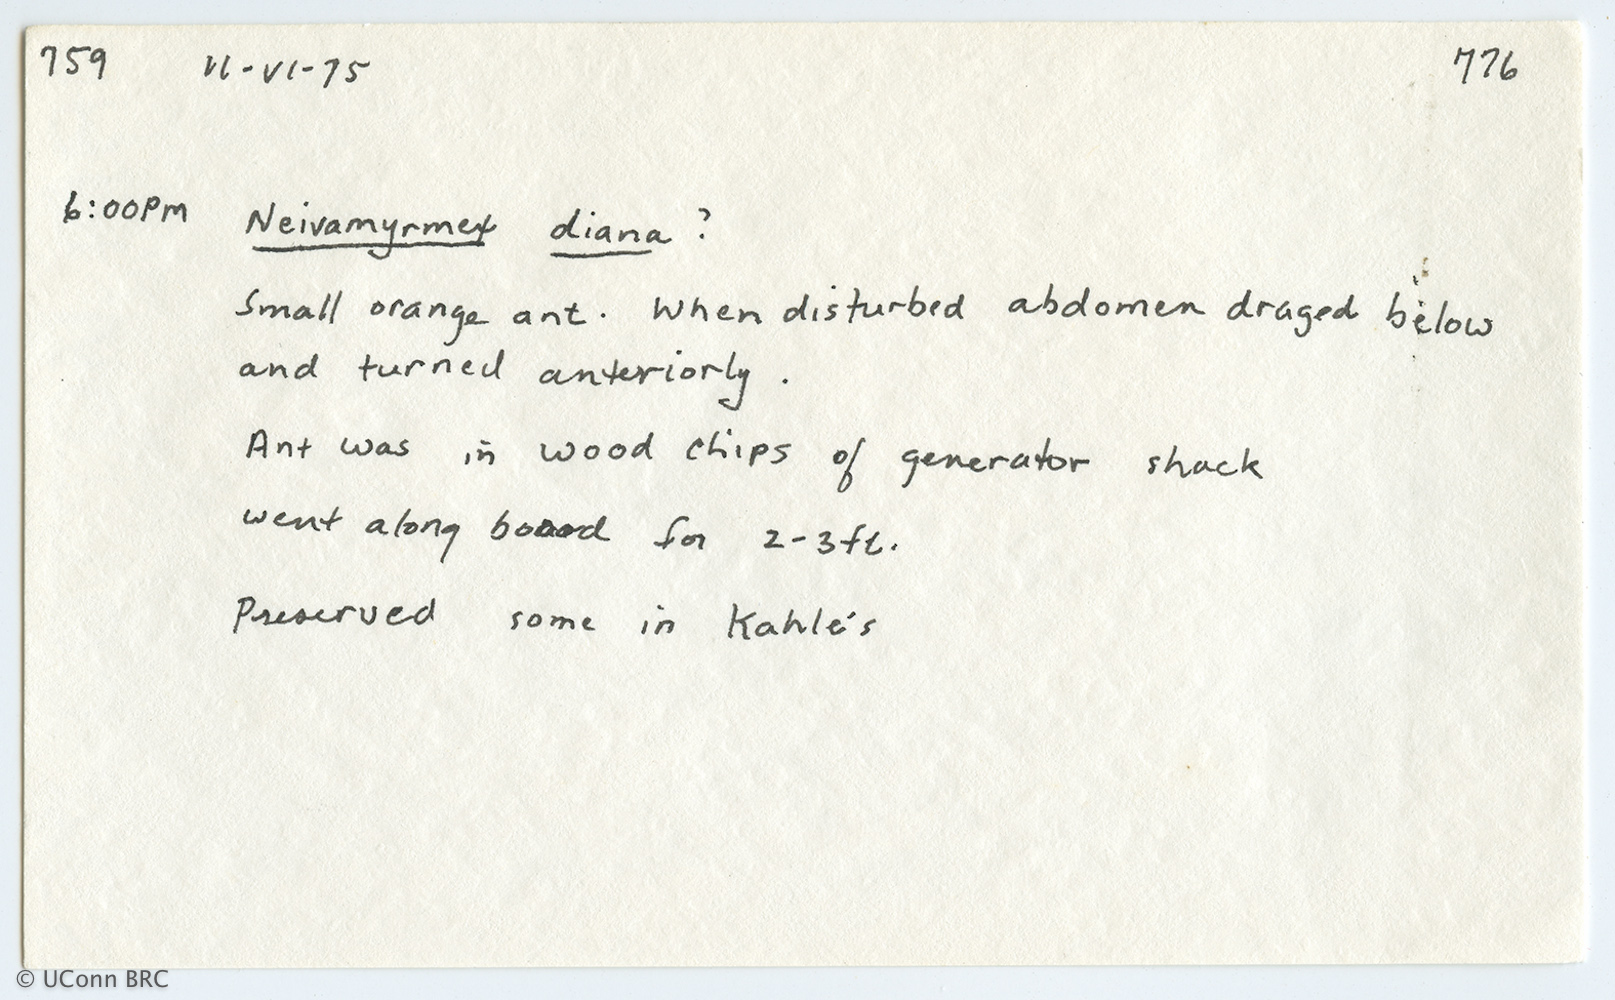 759 11-VI-75 776
6:00PM Neivamyrmex diana ?
Small orange ant. When disturbed abdomen draged below
and turned anteriorly.
Ant was in wood chips of generator shack
went along board for 2-3ft.
Preserved some in Kahle's
© UConn BRC